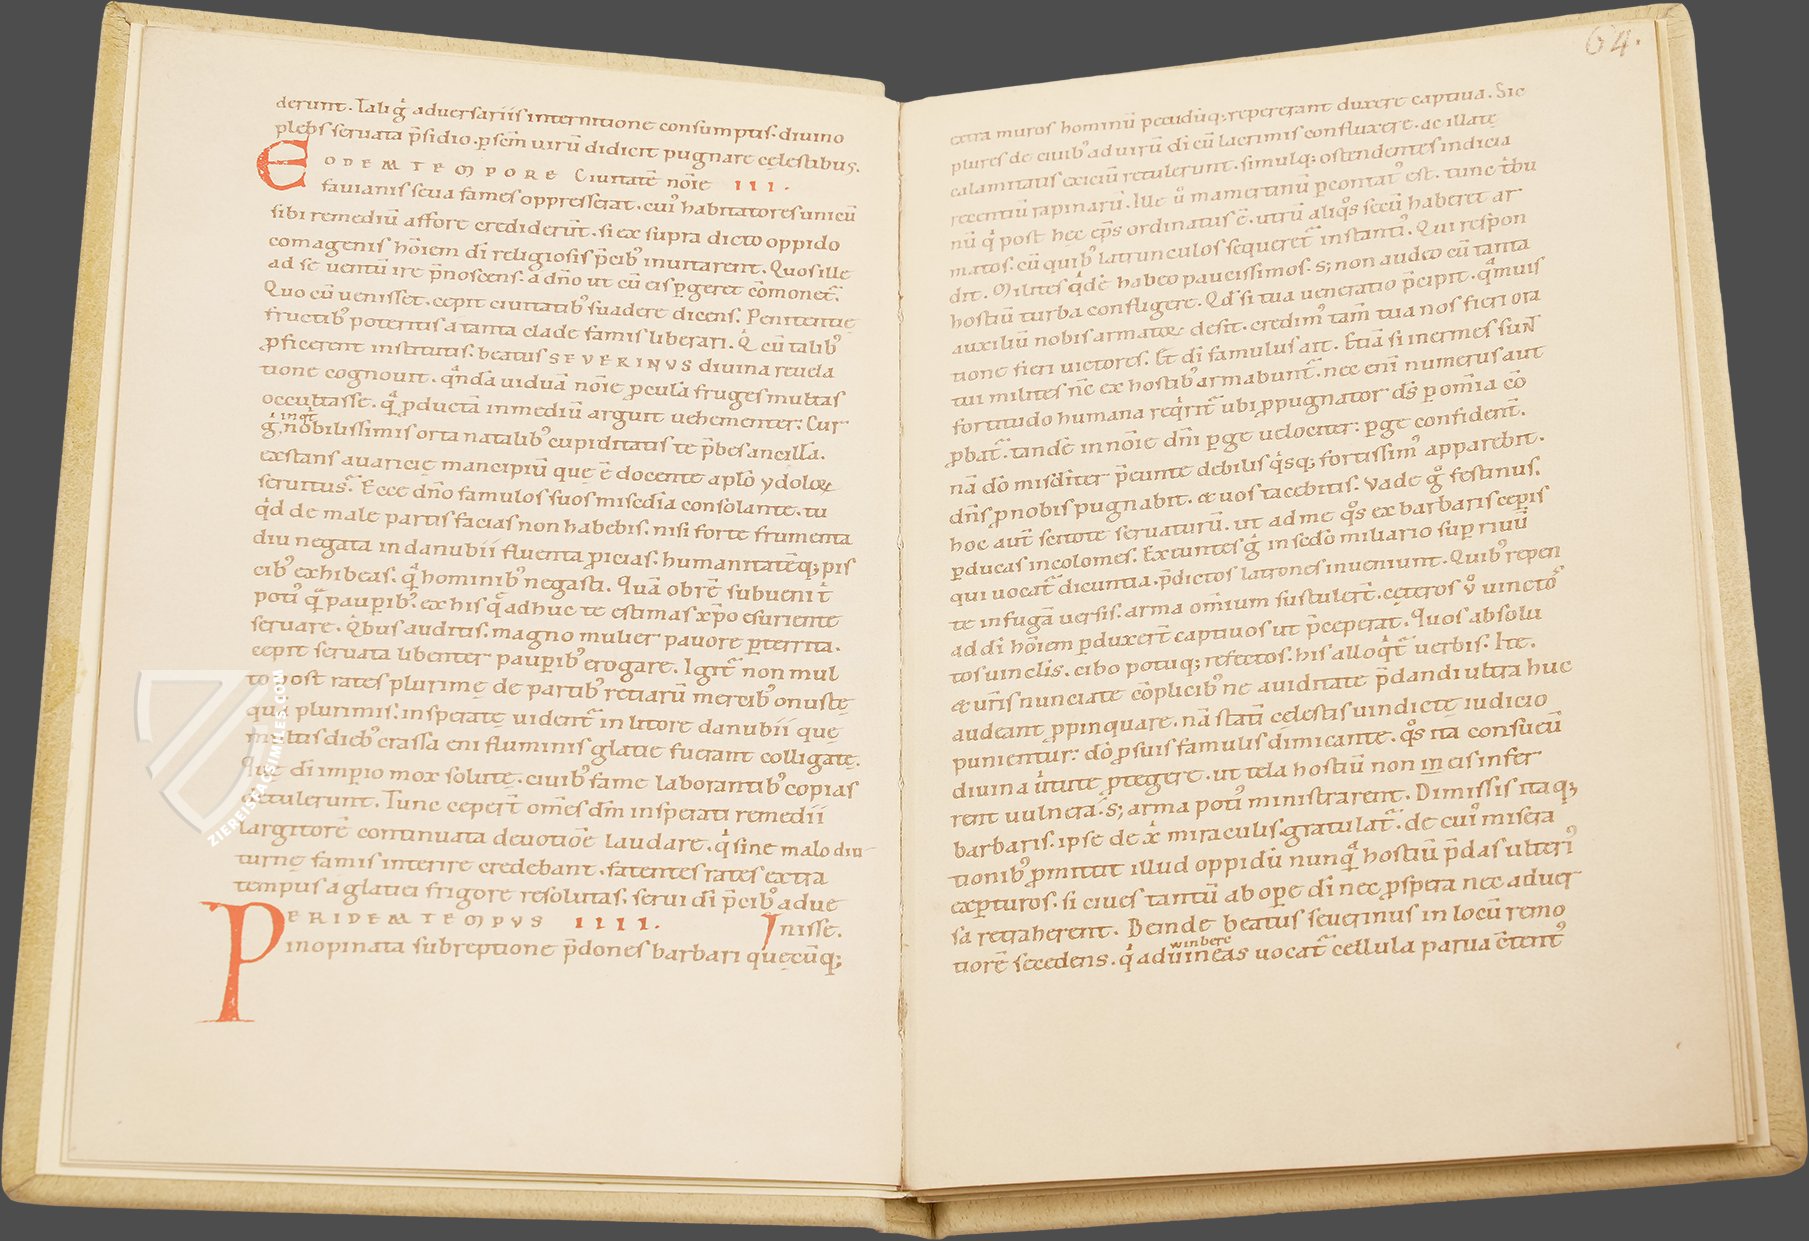 derunt. Taliq̇ adversariis internitione consumptis. divino
plebs servata p̄sidio. p̱ sc̄m virū didicit pugnare cęlestibus.
EODEM TEMPORE Civitatē nōie III.
favianis seva fames oppresserat. cui᾽ habitatores unicū
sibi remediū affore credider̄t. si ex supra dicto oppido
comagenis hōiem di religiosis p̄cib᾽ invitarent. Quos ille
ad se ventū ire p̄noscens. a dn̄o ut cū eis p̱geret cōmonet᷑.
Quo cū venisset. cepit civitatib᾽ suadere dicens. Penitentie
fructib᾽ poteritis a tanta clade famis liberari. Q cū talib᾽
ꝓficerent institutis. beatus SEVERINVS divina revela
tione cognovit. qͣndā viduā nōie ꝓculā fruges multas
occultasse. qͣ ꝓductā in mediū arguit vehementer: Cur
inqͥt
g᾽. nobilissimis orta natalib᾽ cupiditatis te p̄bes ancillā.
exstans avaricię mancipiū quę ē docente aplō ydoloꝝ
servitus᷑. Ecce dn̄o famulos suos misedīa consolante. tu
qͥd de male partis facias non habebis. nisi forte frumenta
diu negata in danubii fluenta ꝓicias. humanitatēq; pis
cib᾽ exhibeas. qͣ hominib᾽ negasti. Quā obrē subveni t̄
poti᾽ qͣ paup̱ib᾽. ex his qͣ adhuc te estimas xp̄o esuriente
servare. Qͥbus auditis. magno mulier pavore p̱territa.
cepit servata libenter paup̱ib᾽ erogare. Igit᷑ non mul
to post rates plurimę de partib᾽ retiarū mercib᾽ onustę
quā plurimis. insperatę vident᷑ in litore danubii quę
multis dieb᾽ crassa eni fluminis glatie fuerant colligatę.
Quę di imp̱io mox solutę. civib᾽ fame laborantib᾽ copias
detulerunt. Tunc cepert̄ om̄es dm̄ insperati remedii
largitorē continuata devotiōe laudare. qͥ sine malo diu
turnę famis interire credebant. fatentes rates extra
tempus a glatiei frigore resolutas. servi di p̄cib᾽ adve
PERIDEM TEMPVS IIII. I nisse.
inopinata subreptione p̄dones barbari quęcūq;
64.
extra muros hominū pecudūq; repererant duxere captiva. Sic
plures de civib᾽ ad virū di cū lacrimis confluxere. ac illatę
calamitatis exiciū retulerunt. simulq; ostendentes indicia
recentiū rapinarū. Ille v᾽ mamertinū p̱contat᷑ est. tunc tͥbu
nū qͥ post hec ep̄s ordinatus ē. utrū aliqͦs secū haberet ar
matos. cū quib᾽ latrunculos sequeret᷑ instanti᾽. Qui respon
dit. Milites qͥdē habeo paucissimos. s; non audeo cū tanta
hostiū turba confligere. Qd̄ si tua veneratio p̄cipit. qͣmvis
auxiliū nobis armatoꝝ desit. credim᾽ tam̄ tua nos fieri ora
tione fieri victores. Et di famulus ait. Etiā si inermes suN̄
tui milites n̄c ex hostib᾽ armabunt᷑. nec eni numerus aut
fortitudo humana reqͥrit᷑ ubi ꝓpugnator ds̄ p̱ om̄ia cō
ꝓbat᷑. tandē in nōie dm̄i p̱ge velociter: p̱ge confident᷑.
nā dō misd̄iter p̄eunte debilis qͥsq; fortissim᾽ apparebit.
dn̄s ꝓ nobis pugnabit. & vos tacebitis. Vade gͦ festinus.
hoc aut̄ scitote servaturū. ut ad me qͦs ex barbaris cep̱is
p̱ducas incolomes. Exeuntes gͥ in sedo miliario sup̱ rivū
qui vocat᷑ dicuntia. p̄dictos latrones inveniunt. Quib᾽ repen
te in fugā versis. arma om̄ium sustulert̄. ceteros v᾽ vincto᾽
ad di hōiem p̱duxert̄ captivos ut p̄ceperat. Quos absolu
tos vinclis. cibo potuq; refectos. his alloqͥt᷑ verbis. Ite.
& vr̄is nunciate cōplicib᾽ ne aviditate p̄dandi ultra huc
audeant ꝓpinquare. nā stati celestis vindictę iudicio
punientur: dō ꝓ suis famulis dimicante. qͦs ita consuevi
divina v᾽tute ꝓtegere. ut tela hostiū non in eis infer
rent vulnera. s; arma poti᾽ ministrarent. Dimissis itaq;
barbaris. ipse de xͥ miraculis gratulat᷑. de cui᾽ misera
tionib᾽ ꝓmittit illud oppidū nunqͣ hostiū p̄das ulteri᾽
exp̱turos. si cives tantū ab op̱e di nec ꝓspera nec adver
sa retraherent. Deinde beatus severinus in locū remo
winbere
tiorē secedens. qͥ ad vineas vocat᷑ cellula parva c̄tent᾽
ZIEREIS FACSIMILES.COM